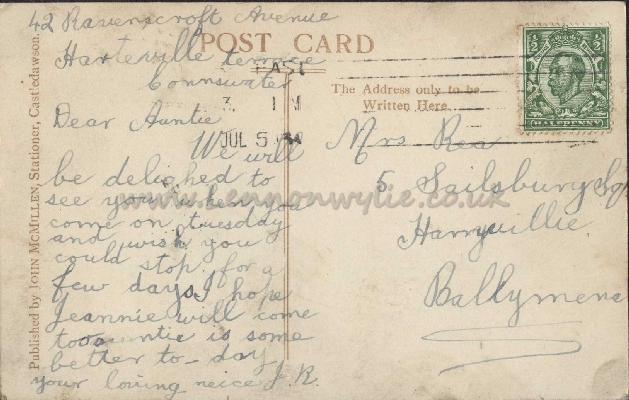 42 Ravenscroft Avenue
Harteville terrace
Connswater
POST CARD
EAST
3. 1 M
JUL 5
The Address only to be
Written Here.
½ ½
HALFPENNY
Published by JOHN MCMILLEN, Stationer, Castledawson.
Dear Auntie
We will
be delighed to
see you when you
come on tuesday
and wish you
could stop for a
few days I hope
Jeannie will come
too auntie is some
better to-day
your loving neice J.R.
Mrs Rea
5 Sailsburg Sq
Harryville
Ballymena
www.lennonwylie.co.uk